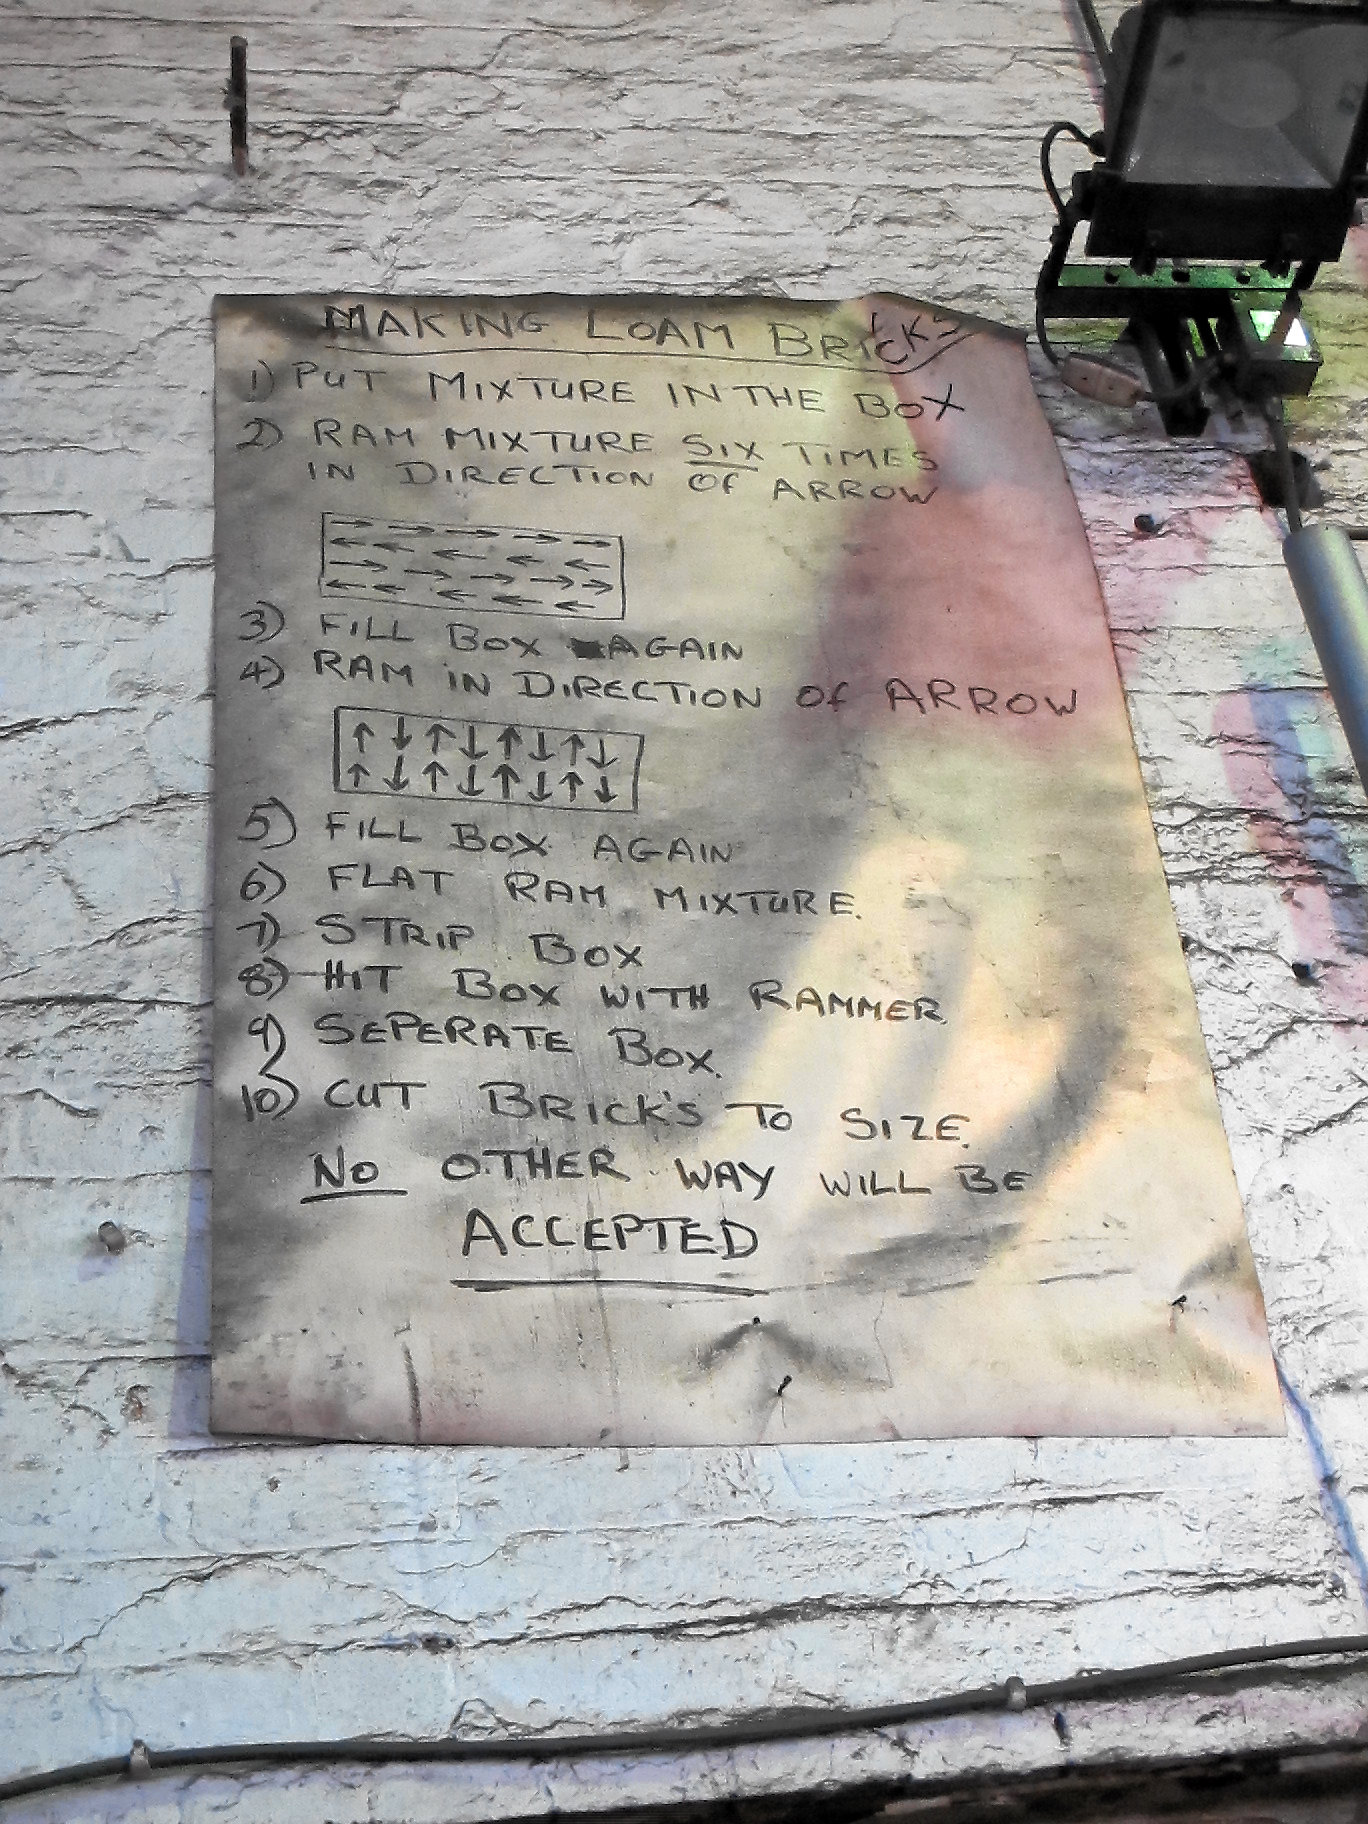 MAKING LOAM BRICKS
1) PUT MIXTURE IN THE BOX
2) RAM MIXTURE SIX TIMES
IN DIRECTION OF ARROW
3) FILL BOX AGAIN
4) RAM IN DIRECTION OF ARROW
5) FILL BOX AGAIN
6) FLAT RAM MIXTURE.
7) STRIP BOX
8) HIT BOX WITH RAMMER.
9) SEPERATE BOX.
10) CUT BRICK'S TO SIZE.
NO OTHER WAY WILL BE
ACCEPTED